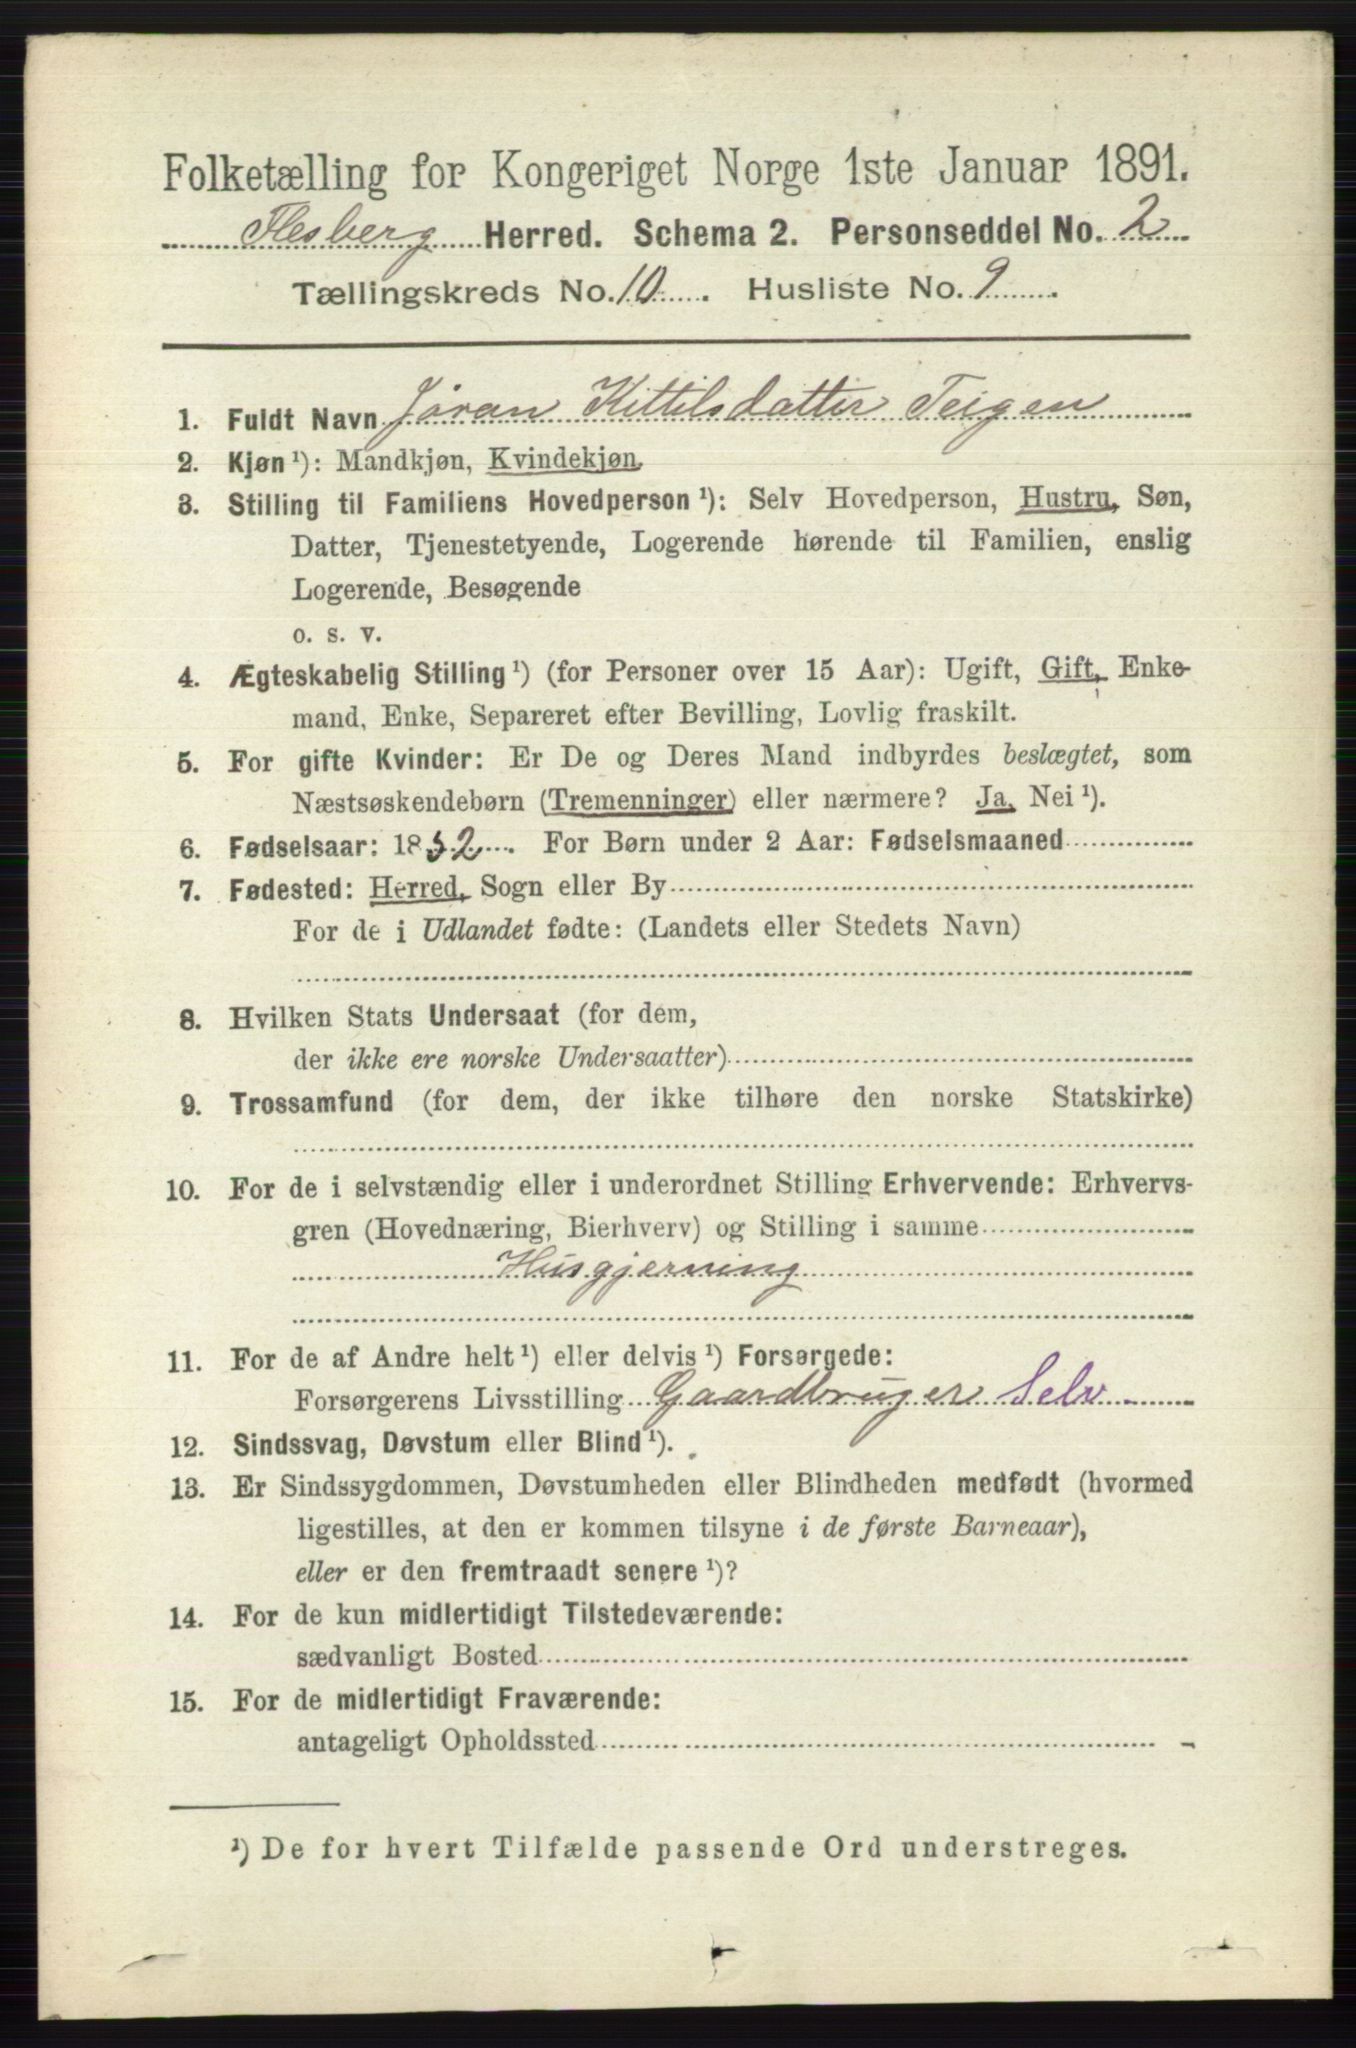 Folketælling for Kongeriget Norge 1ste Januar 1891.
Flesberg Herred. Schema 2. Personseddel No. 2
Tællingskreds No. 10. Husliste No. 9.
1. Fuldt Navn Jøran Kittilsdatter Teigen
2. Kjøn ¹): Mandkjøn, Kvindekjøn.
3. Stilling til Familiens Hovedperson ¹): Selv Hovedperson, Hustru, Søn,
Datter, Tjenestetyende, Logerende hørende til Familien, enslig
Logerende, Besøgende
o. s. v.
4. Ægteskabelig Stilling ¹) (for Personer over 15 Aar): Ugift, Gift, Enke-
mand, Enke, Separeret efter Bevilling, Lovlig fraskilt.
5. For gifte Kvinder: Er De og Deres Mand indbyrdes beslægtet, som
Næstsøskendebørn (Tremenninger) eller nærmere? Ja, Nei ¹).
6. Fødselsaar: 1852. For Børn under 2 Aar: Fødselsmaaned
7. Fødested: Herred, Sogn eller By
For de i Udlandet fødte: (Landets eller Stedets Navn)
8. Hvilken Stats Undersaat (for dem,
der ikke ere norske Undersaatter)
9. Trossamfund (for dem, der ikke tilhøre den norske Statskirke)
10. For de i selvstændig eller i underordnet Stilling Erhvervende: Erhvervs-
gren (Hovednæring, Bierhverv) og Stilling i samme
Husgjerning
11. For de af Andre helt ¹) eller delvis ¹) Forsørgede:
Forsørgerens Livsstilling Gaardbruger Selv
12. Sindssvag, Døvstum eller Blind ¹).
13. Er Sindssygdommen, Døvstumheden eller Blindheden medfødt (hvormed
ligestilles, at den er kommen tilsyne i de første Barneaar),
eller er den fremtraadt senere ¹)?
14. For de kun midlertidigt Tilstedeværende:
sædvanligt Bosted
15. For de midlertidigt Fraværende:
antageligt Opholdssted
¹) De for hvert Tilfælde passende Ord understreges.